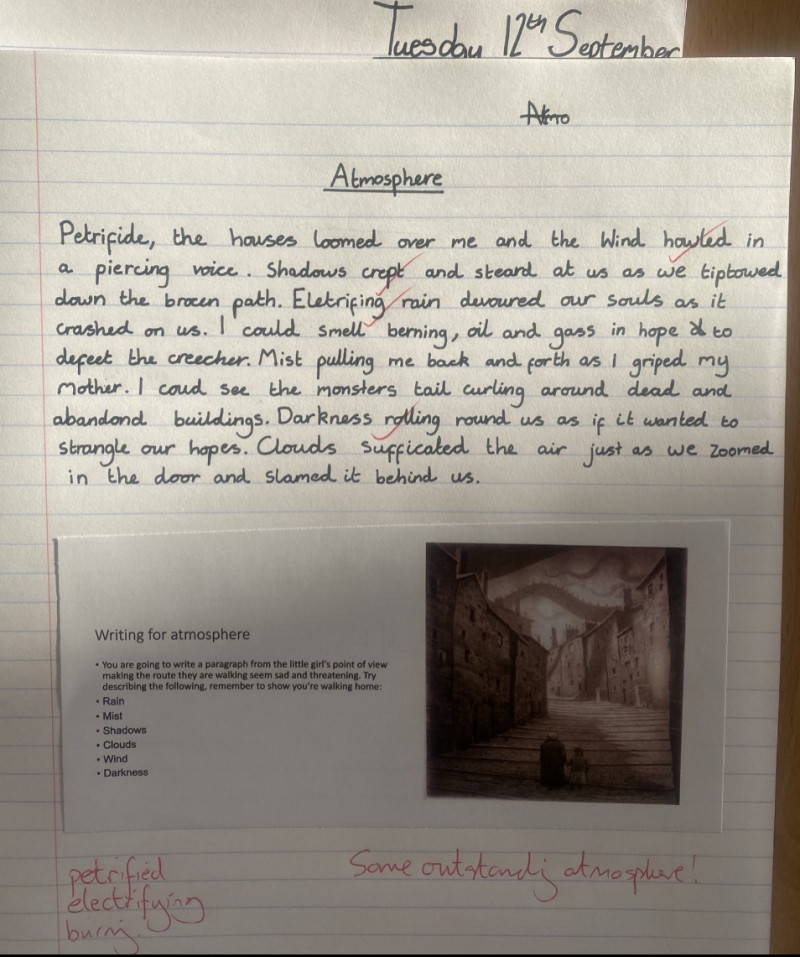 Tuesday 12th September
Atmo
Atmosphere
Petrifide, the houses loomed over me and the Wind howled in
a piercing voice. Shadows crept and steard at us as we tiptowed
down the brocen path. Eletrifing rain devoured our souls as it
crashed on us. I could smell berning, oil and gass in hope to
defeet the creecher. Mist pulling me back and forth as I griped my
Mother. I coud see the monsters tail curling around dead and
abandond buildings. Darkness rolling round us as if it wanted to
strangle our hopes. Clouds sufficated the air just as we zoomed
in the door and slamed it behind us.
Writing for atmosphere
• You are going to write a paragraph from the little girl's point of view
making the route they are walking seem sad and threatening. Try
describing the following, remember to show you're walking home:
• Rain
• Mist
• Shadows
• Clouds
• Wind
• Darkness
petrified
electrifying
Some outstandg atmosphere!